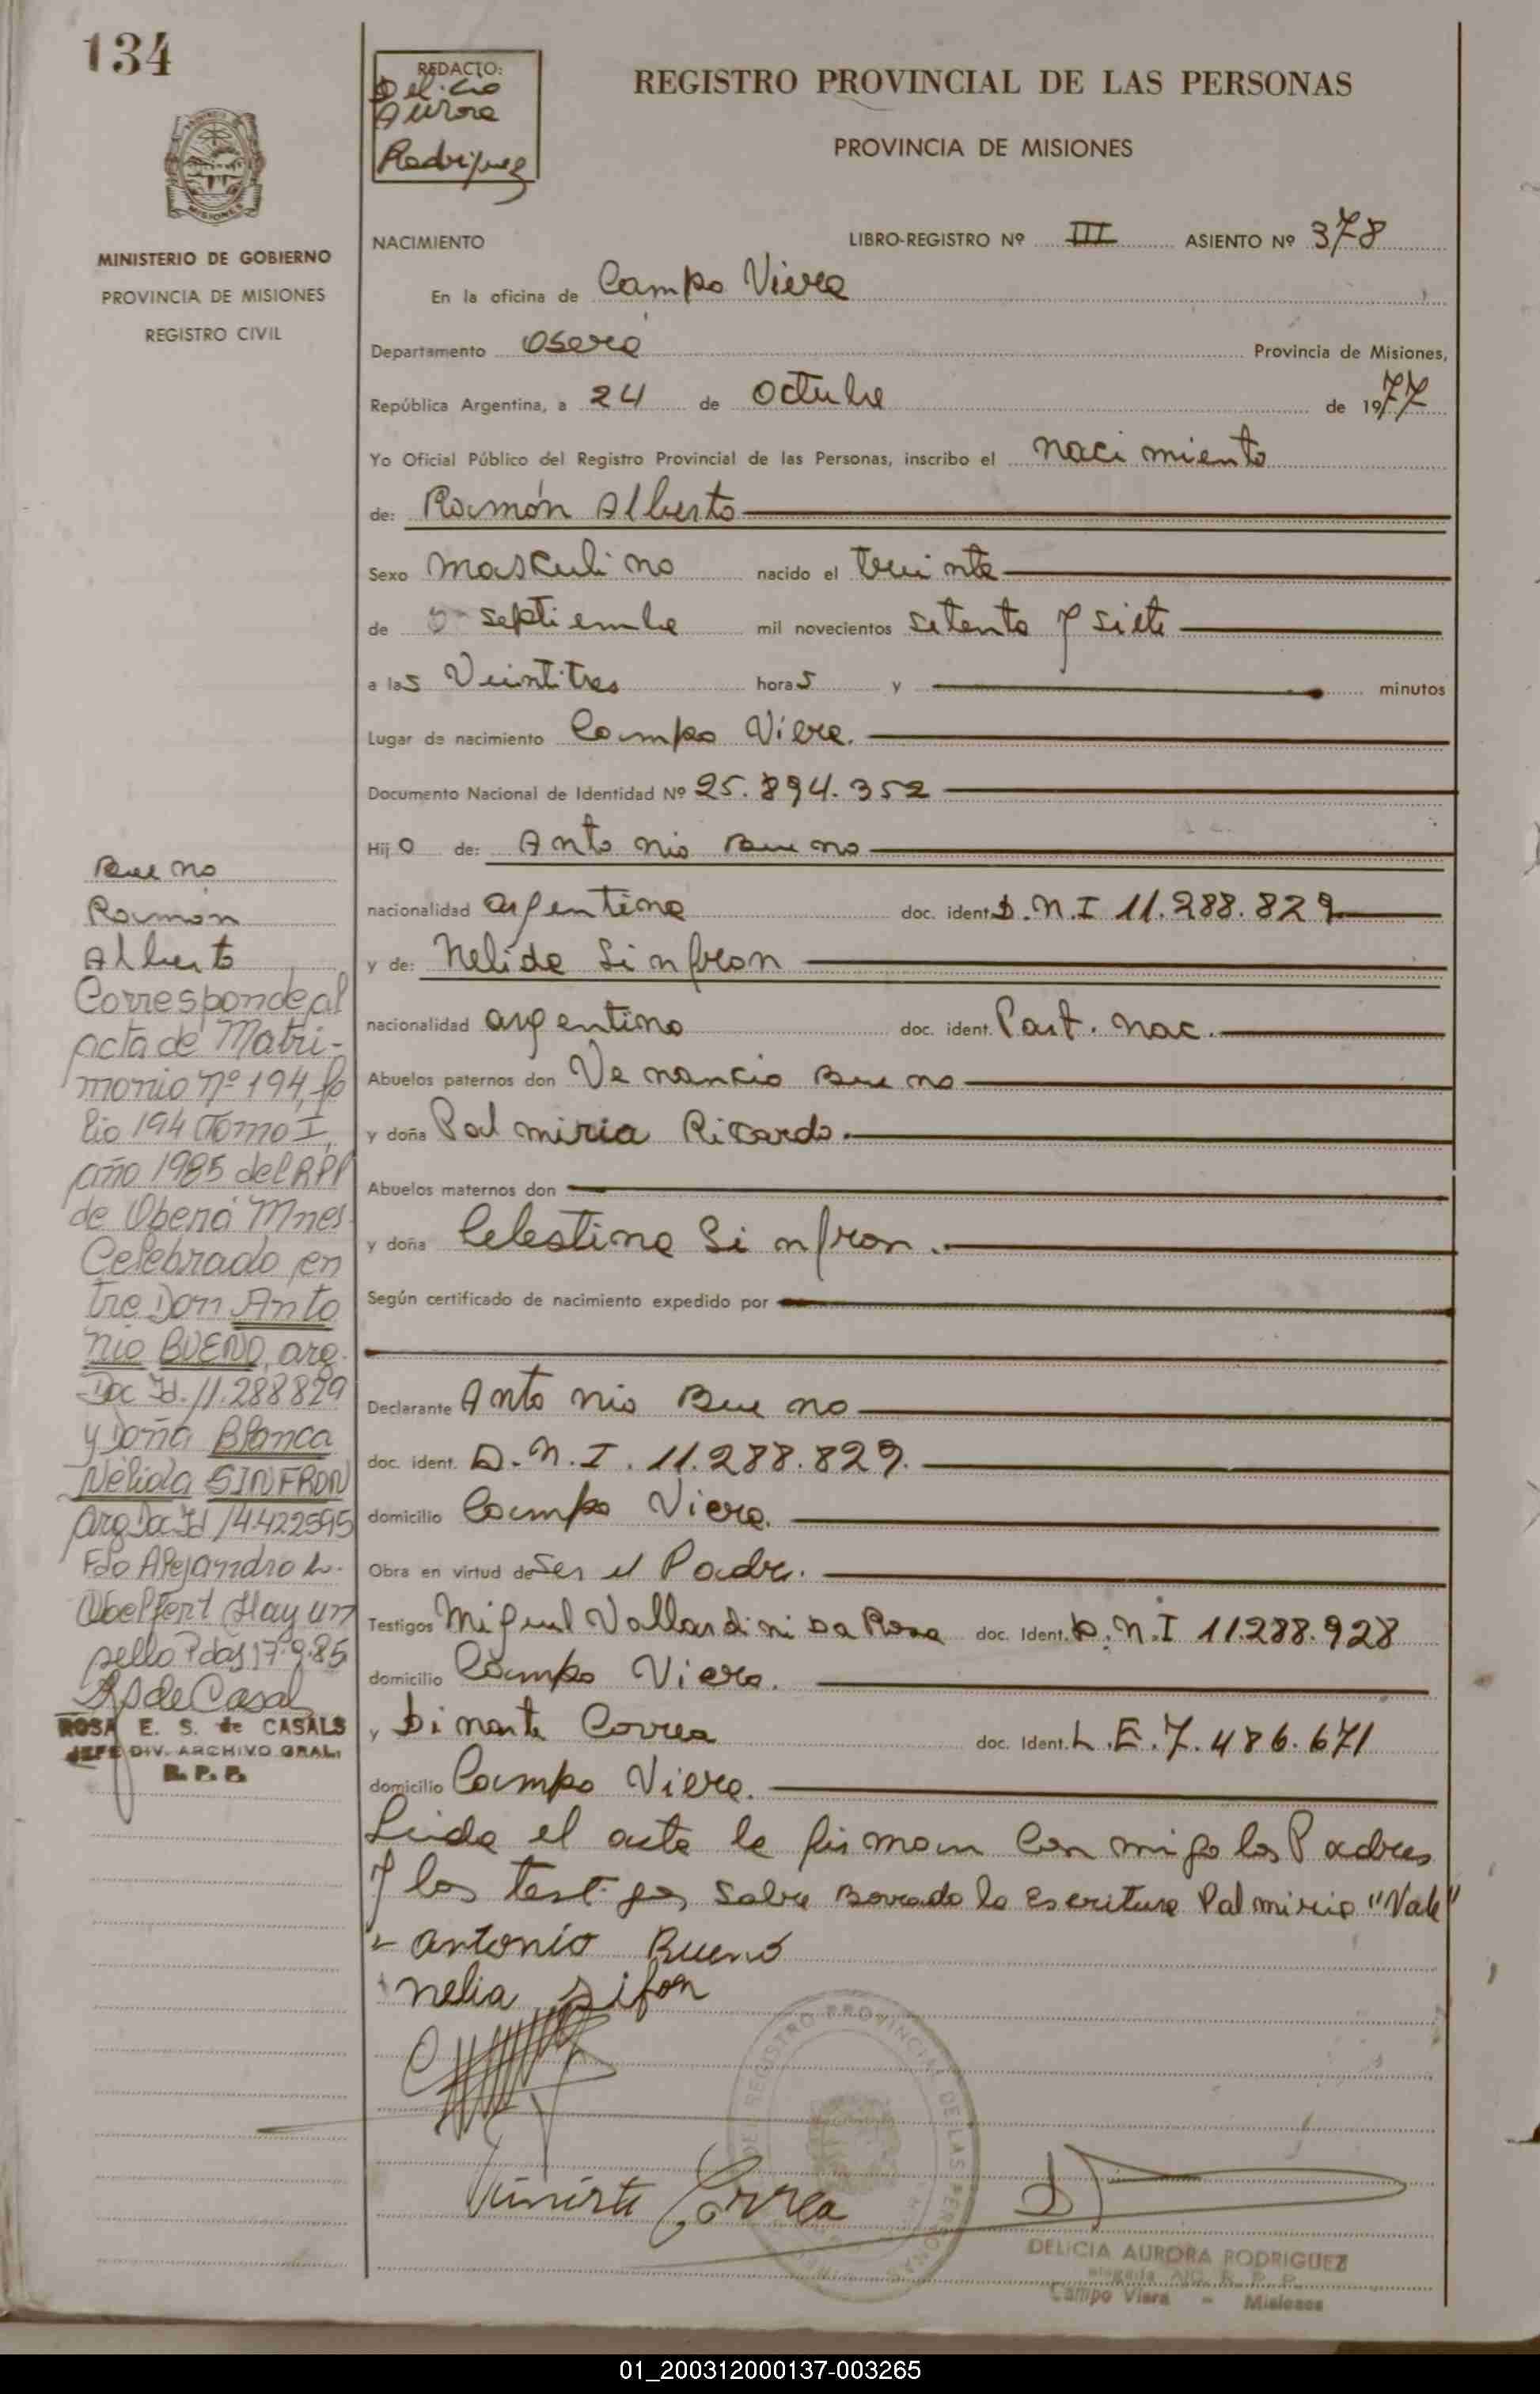 134
REDACTO:
Aurora
Rodriguez
REGISTRO PROVINCIAL DE LAS PERSONAS
PROVINCIA DE MISIONES
MISIONES
MINISTERIO DE GOBIERNO
PROVINCIA DE MISIONES
REGISTRO CIVIL
NACIMIENTO
LIBRO-REGISTRO Nº III ASIENTO Nº 378
En la oficina de Campo Viera
Departamento Oberá Provincia de Misiones,
República Argentina, a 24 de Octubre de 1977
Yo Oficial Público del Registro Provincial de las Personas, inscribo el nacimiento
de: Ramón Alberto
Sexo masculino nacido el treinta
de septiembre mil novecientos setenta y siete
a las Veintitres horas y minutos
Lugar de nacimiento Campo Viera.
Documento Nacional de Identidad Nº 25.894.352
Hijo de: Antonio Bueno
nacionalidad argentina doc. ident. D.N.I 11.288.829
y de: Nelida Sinfron
nacionalidad argentina doc. ident. Part. Nac.
Abuelos paternos don Venancio Bueno
y doña Palmiria Ricardo.
Abuelos maternos don
y doña Celestina Sinfron.
Según certificado de nacimiento expedido por
Declarante Antonio Bueno
doc. ident. D.N.I. 11.288.829.
domicilio Campo Viera.
Obra en virtud de ser el Padre.
Testigos Miguel Vallardini Da Rosa doc. Ident. D.N.I 11.288.928
domicilio Campo Viera.
y Dinarte Correa doc. Ident. L.E. 7.486.671
domicilio Campo Viera.
Leida el acta la firman conmigo los Padres
y los testigos, sobre Borrado la Escritura Palmiria "Vale"
antonio Bueno
nelia sifon
Correa
DELICIA AURORA RODRIGUEZ
Campo Viera - Misiones
Bueno
Ramón
Alberto
Corresponde al
acta de Matri-
monio nº 194, fo
lio 194 Tomo I,
año 1985 del RPP
de Oberá Mnes
Celebrado en
tre Don Anto
nio BUENO, arg.
Doc Id. 11.288829
y Doña Blanca
Nélida SINFRON
arg Doc Id 14422595
Fdo Alejandro W.
Hay un
sello Pdas 17.9.85
RS de Casals
ROSA E. S. de CASALS
JEFE DIV. ARCHIVO GRAL.
R. P. P.
01_200312000137-003265